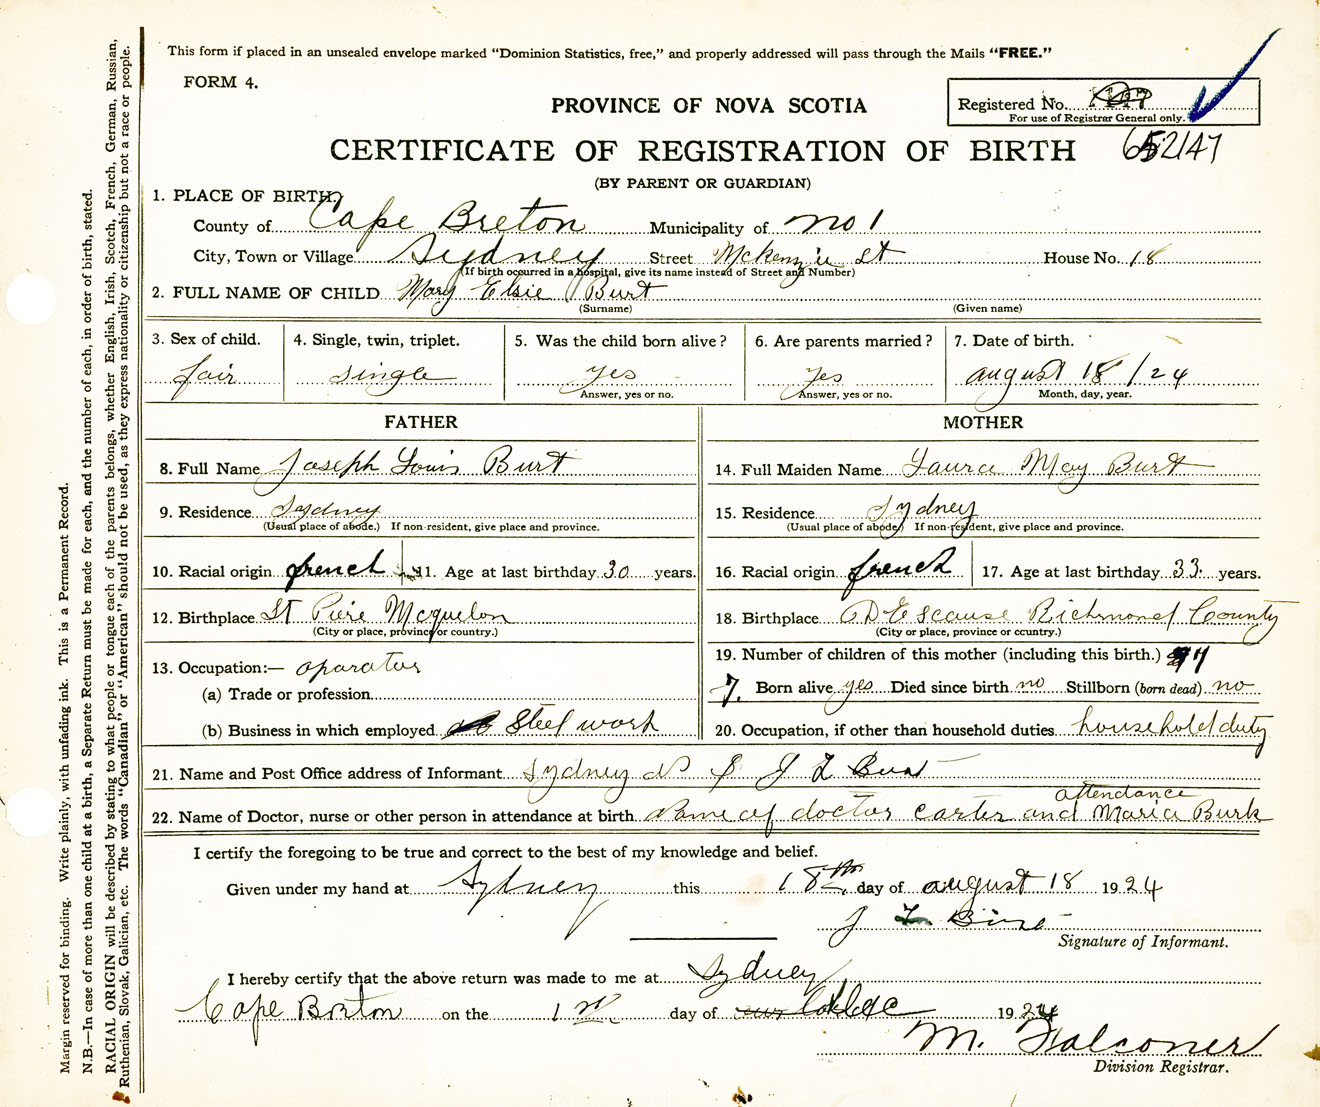 This form if placed in an unsealed envelope marked "Dominion Statistics, free," and properly addressed will pass through the Mails "FREE."
FORM 4.
PROVINCE OF NOVA SCOTIA
Registered No.
For use of Registrar General only.
CERTIFICATE OF REGISTRATION OF BIRTH
(BY PARENT OR GUARDIAN)
1. PLACE OF BIRTH.
County of Cape Breton Municipality of no 1
City, Town or Village Sydney Street Mckenzie St House No. 18
(If birth occurred in a hospital, give its name instead of Street and Number)
2. FULL NAME OF CHILD Mary Elsie Burt
(Surname) (Given name)
3. Sex of child. 4. Single, twin, triplet. 5. Was the child born alive? 6. Are parents married? 7. Date of birth.
fair single yes yes august 18 / 24
Answer, yes or no. Answer, yes or no. Month, day, year.
FATHER MOTHER
8. Full Name Joseph Louis Burt 14. Full Maiden Name Laura May Burt
9. Residence Sydney 15. Residence Sydney
(Usual place of abode.) If non-resident, give place and province. (Usual place of abode) If non-resident, give place and province.
10. Racial origin french 11. Age at last birthday 30 years. 16. Racial origin french 17. Age at last birthday 33 years.
12. Birthplace St Piere Mcquelon 18. Birthplace D Escause Richmond County
(City or place, province or country.) (City or place, province or country.)
13. Occupation:— oparator 19. Number of children of this mother (including this birth.) 7
(a) Trade or profession 7. Born alive yes Died since birth no Stillborn (born dead) no
(b) Business in which employed Steel work 20. Occupation, if other than household duties household duty
21. Name and Post Office address of Informant Sydney J L
attendance
22. Name of Doctor, nurse or other person in attendance at birth name of doctor carter and Maria Burk
I certify the foregoing to be true and correct to the best of my knowledge and belief.
Given under my hand at Sydney this 18th day of august 18 1924
J L
Signature of Informant.
I hereby certify that the above return was made to me at Sydney
Cape Breton on the 1st day of 1924
M. Falconer
Division Registrar.
Margin reserved for binding. Write plainly, with unfading ink. This is a Permanent Record.
N.B.—In case of more than one child at a birth, a Separate Return must be made for each, and the number of each, in order of birth, stated.
RACIAL ORIGIN will be described by stating to what people or tongue each of the parents belongs, whether English, Irish, Scotch, French, German, Russian,
Ruthenian, Slovak, Galician, etc. The words "Canadian" or "American" should not be used, as they express nationality or citizenship but not a race or people.